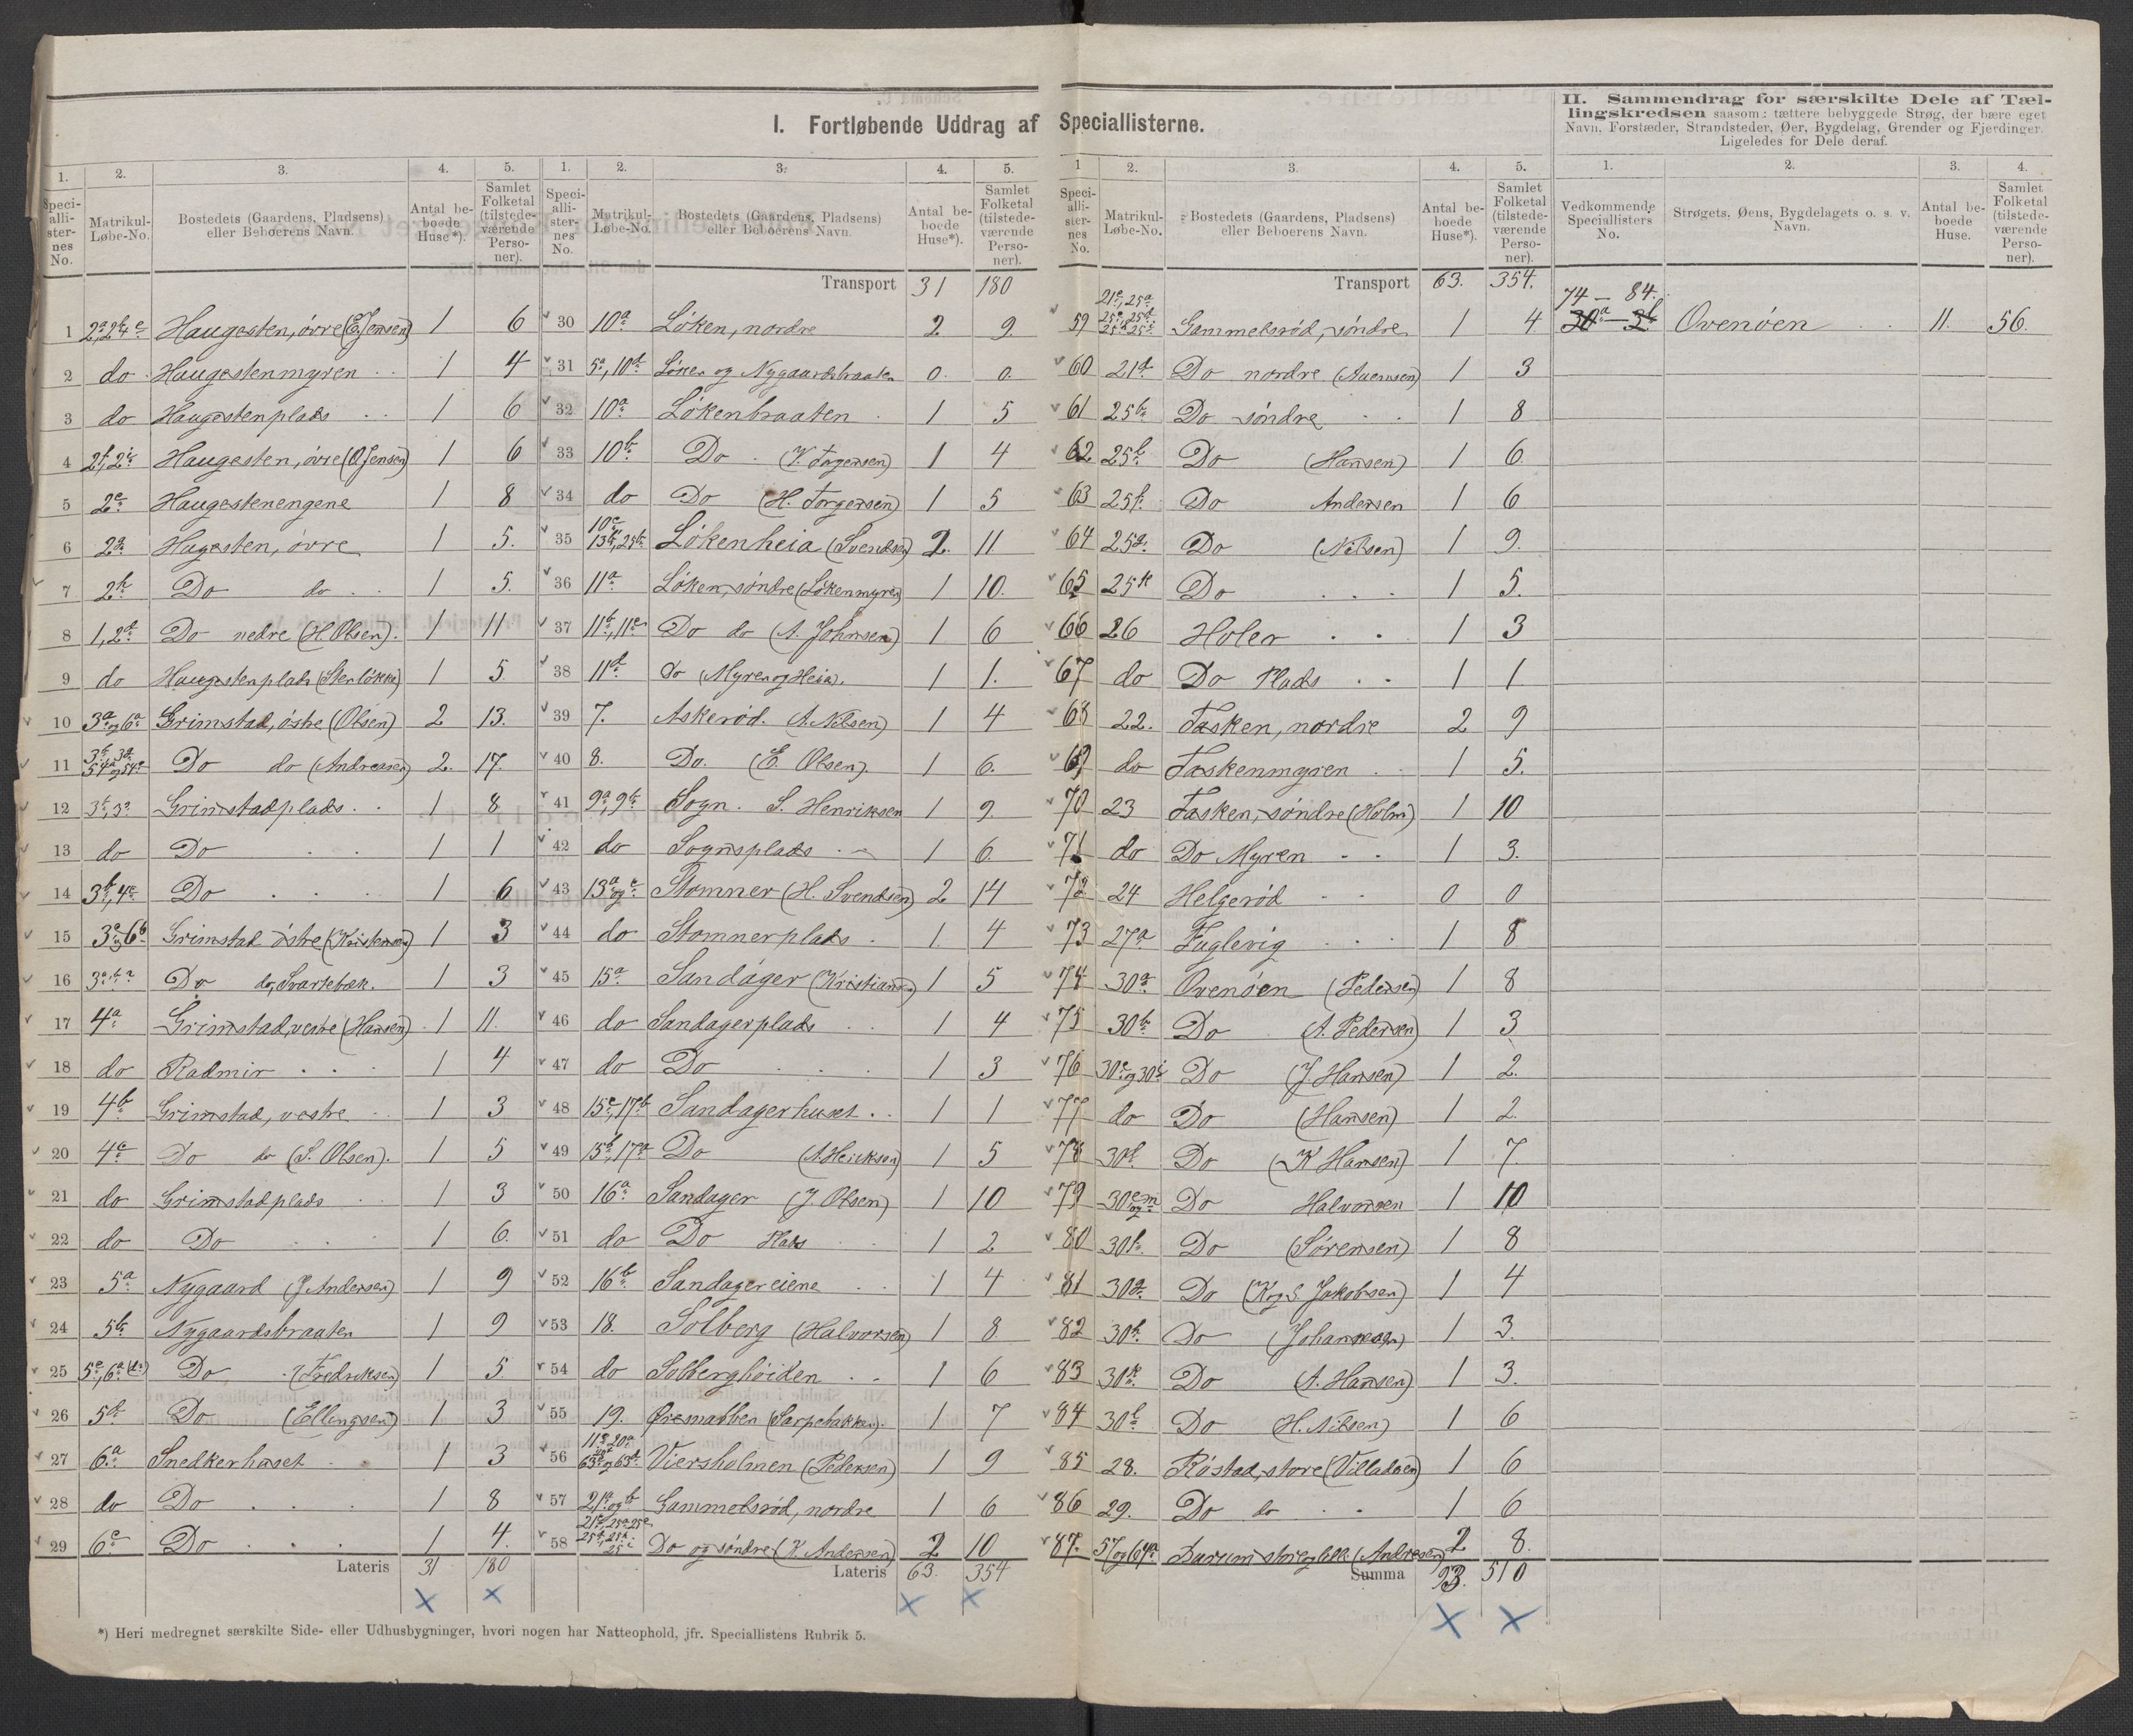 I. Fortløbende Uddrag af Speciallisterne.
II. Sammendrag for særskilte Dele af Tæl-
lingskredsen saasom: tættere bebyggede Strøg, der bære eget
Navn, Forstæder, Strandsteder, Øer, Bygdelag, Grender og Fjerdinger.
Ligeledes for Dele deraf.
1. 2. 3. 4. 5.
Speci-alli-ster-nes No. Matrikul-Løbe-No. Bostedets (Gaardens, Pladsens) eller Beboerens Navn. Antal be-boede Huse*). Samlet Folketal (tilstede-værende Perso-ner).
1 2a, 2b, 4e Haugesten, övre (E. Jensen) 1 6
2 do Haugestenmyren 1 4
3 do Haugestenplads 1 6
4 2f, 2i Haugesten, övre (O. Jensen) 1 6
5 2e Haugestenengene 1 8
6 2g Hugesten, övre 1 5.
7 2h Do do 1 5.
8 1, 2d Do nedre (H. Olsen). 1 11
9 do Haugestenplads (Stenlökka) 1 5.
10 3a og 6a Grimstad, östre (Olsen) 2 13.
11 Do do (Andreasen) 2. 17.
12 Grimstadplads 1 8
13 do Do 1 1
14 3b, 4c Do 1 6
15 3e og 6b Grimstad östre (Kristensen) 1 3
16 Do do, Svartebæk. 1 3
17 4a Grimstad, vestre (Hansen) 1 11.
18 do Radmir 1 4
19 4b Grimstad, vestre 1 3
20 4c Do do (S. Olsen). 1 5
21 do Grimstadplads 1 3
22 do Do 1 6.
23 5a Nygaard (J. Andersen) 1 9
24 5b Nygaardsbraaten 1 9
25 5c, 6a Do (Fredriksen) 1 5.
26 5d Do (Ellingsen) 1 3
27 6a Snedkerhuset 1 3
28 do Do 1 8
29 6c Do 1 4.
Lateris 31 180
*) Heri medregnet særskilte Side- eller Udhusbygninger, hvori nogen har Natteophold, jfr. Speciallistens Rubrik 5.
1. 2. 3. 4. 5.
Speci-alli-ster-nes No. Matrikul-Løbe-No. Bostedets (Gaardens, Pladsens) eller Beboerens Navn. Antal be-boede Huse*). Samlet Folketal (tilstede-værende Perso-ner).
Transport 31 180
30 10a Löken, nordre 2 9.
31 5a, 10d Löken og Nygaardsbraaten 0. 0.
32 10a Lökenbraaten 1 5
33 10b Do (V. Torgersen) 1 4
34 do Do (H. Torgersen) 1 5
35 10c 13b, 25b Lökenheia (Svendsen) 2. 11
36 11a Löken, söndre (Lökenmyren) 1 10.
37 11b, 11c Do do (A. Johnsen) 1 6
38 11d Do (Myren og Heia). 1 1.
39 7. Askeröd. (A. Nilsen) 1 4
40 8. Do. (E. Olsen). 1 6.
41 9a, 9b Sogn. S. Henriksen 1 9.
42 do Sognsplads 1 6.
43 13a og c Stomner (H. Svendsen) 2 14
44 do Stomnerplads 1. 4
45 15a Sandager (Kristiansen) 1 5
46 do Sandagerplads 1 4
47 do Do 1 3
48 15c, 17b Sandagerhuset 1 1
49 15b, 17a Do (A. Henriksen) 1 5
50 16a Sandager (J. Olsen) 1 10
51 do Do Plads 1 2
52 16b Sandagereiene 1 4
53 18. Solberg (Halvorsen) 1 8.
54 do Solberghöiden 1 6
55 19. Öresnabben (Sarpebakken). 1 7
56 Viersholmen (Pedersen) 1 9
57 21a og b Gammelsröd, nordre 1 6
58 Do og söndre (K. Andersen) 2 10
Lateris 63. 354
1 2. 3. 4. 5.
Speci-alli-ster-nes No. Matrikul-Løbe-No. Bostedets (Gaardens, Pladsens) eller Beboerens Navn. Antal be-boede Huse*). Samlet Folketal (tilstede-værende Perso-ner).
Transport 63. 354.
59 Gammelsröd, söndre 1 4
60 21d Do nordre 1 3
61 25b Do söndre 1 8
62 Do (Hansen) 1 6
63 25f Do Andersen 1 6
64 25g Do (Nilsen) 1 9.
65 25k Do 1 5.
66 26 Holer 1 3
67 do Do Plads 1 1
68 22. Tasken, nordre 2 9
69 do Taskenmyren 1 5.
70 23 Tasken, söndre (Holm) 1 10
71 do Do Myren 1 3.
72 24 Helgeröd 0 0
73 27a Fuglevig 1 8
74 30a Ovenöen (Pedersen) 1 8
75 30b Do (A. Pedersen) 1 3
76 30c og 30i Do (J Hansen) 1 2.
77 do Do (Hansen) 1 2.
78 30d Do (K Hansen) 1 7.
79 30e og m Do Halvorsen 1 10
80 30f. Do (Sörensen) 1 8
81 30g Do (K og S. Jakobsen) 1 4
82 30h Do (Johannesen) 1 3.
83 30k Do (A. Hansen) 1 3.
84 30l Do (H. Nilsen) 1 6
85 28. Röstad, store (Villadsen) 1 6
86 29. Do do 1 6
87. 57 og 64a Burum store og lille (Andresen) 2 8.
Summa 93. 510
1. 2. 3. 4.
Vedkommende Speciallisters No. Strøgets, Øens, Bygdelagets o. s. v. Navn. Antal be-boede Huse. Samlet Folketal (tilstede-værende Perso-ner).
74 — 84.
30a — Ovenöen 11. 56.